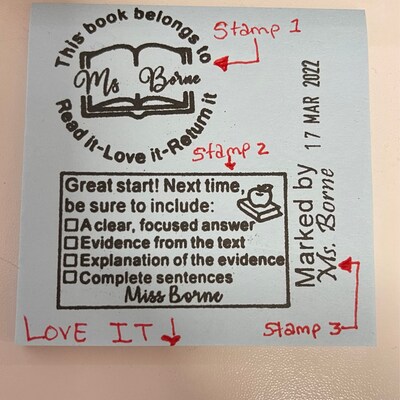 This book belongs to
Ms. Borne
Read it-Love it-Return it
Stamp 1
Stamp 2
Great start! Next time,
be sure to include:
☐ A clear, focused answer
☐ Evidence from the text
☐ Explanation of the evidence
☐ Complete sentences
Miss Borne
Marked by
Ms. Borne
17 MAR 2022
Stamp 3
LOVE IT